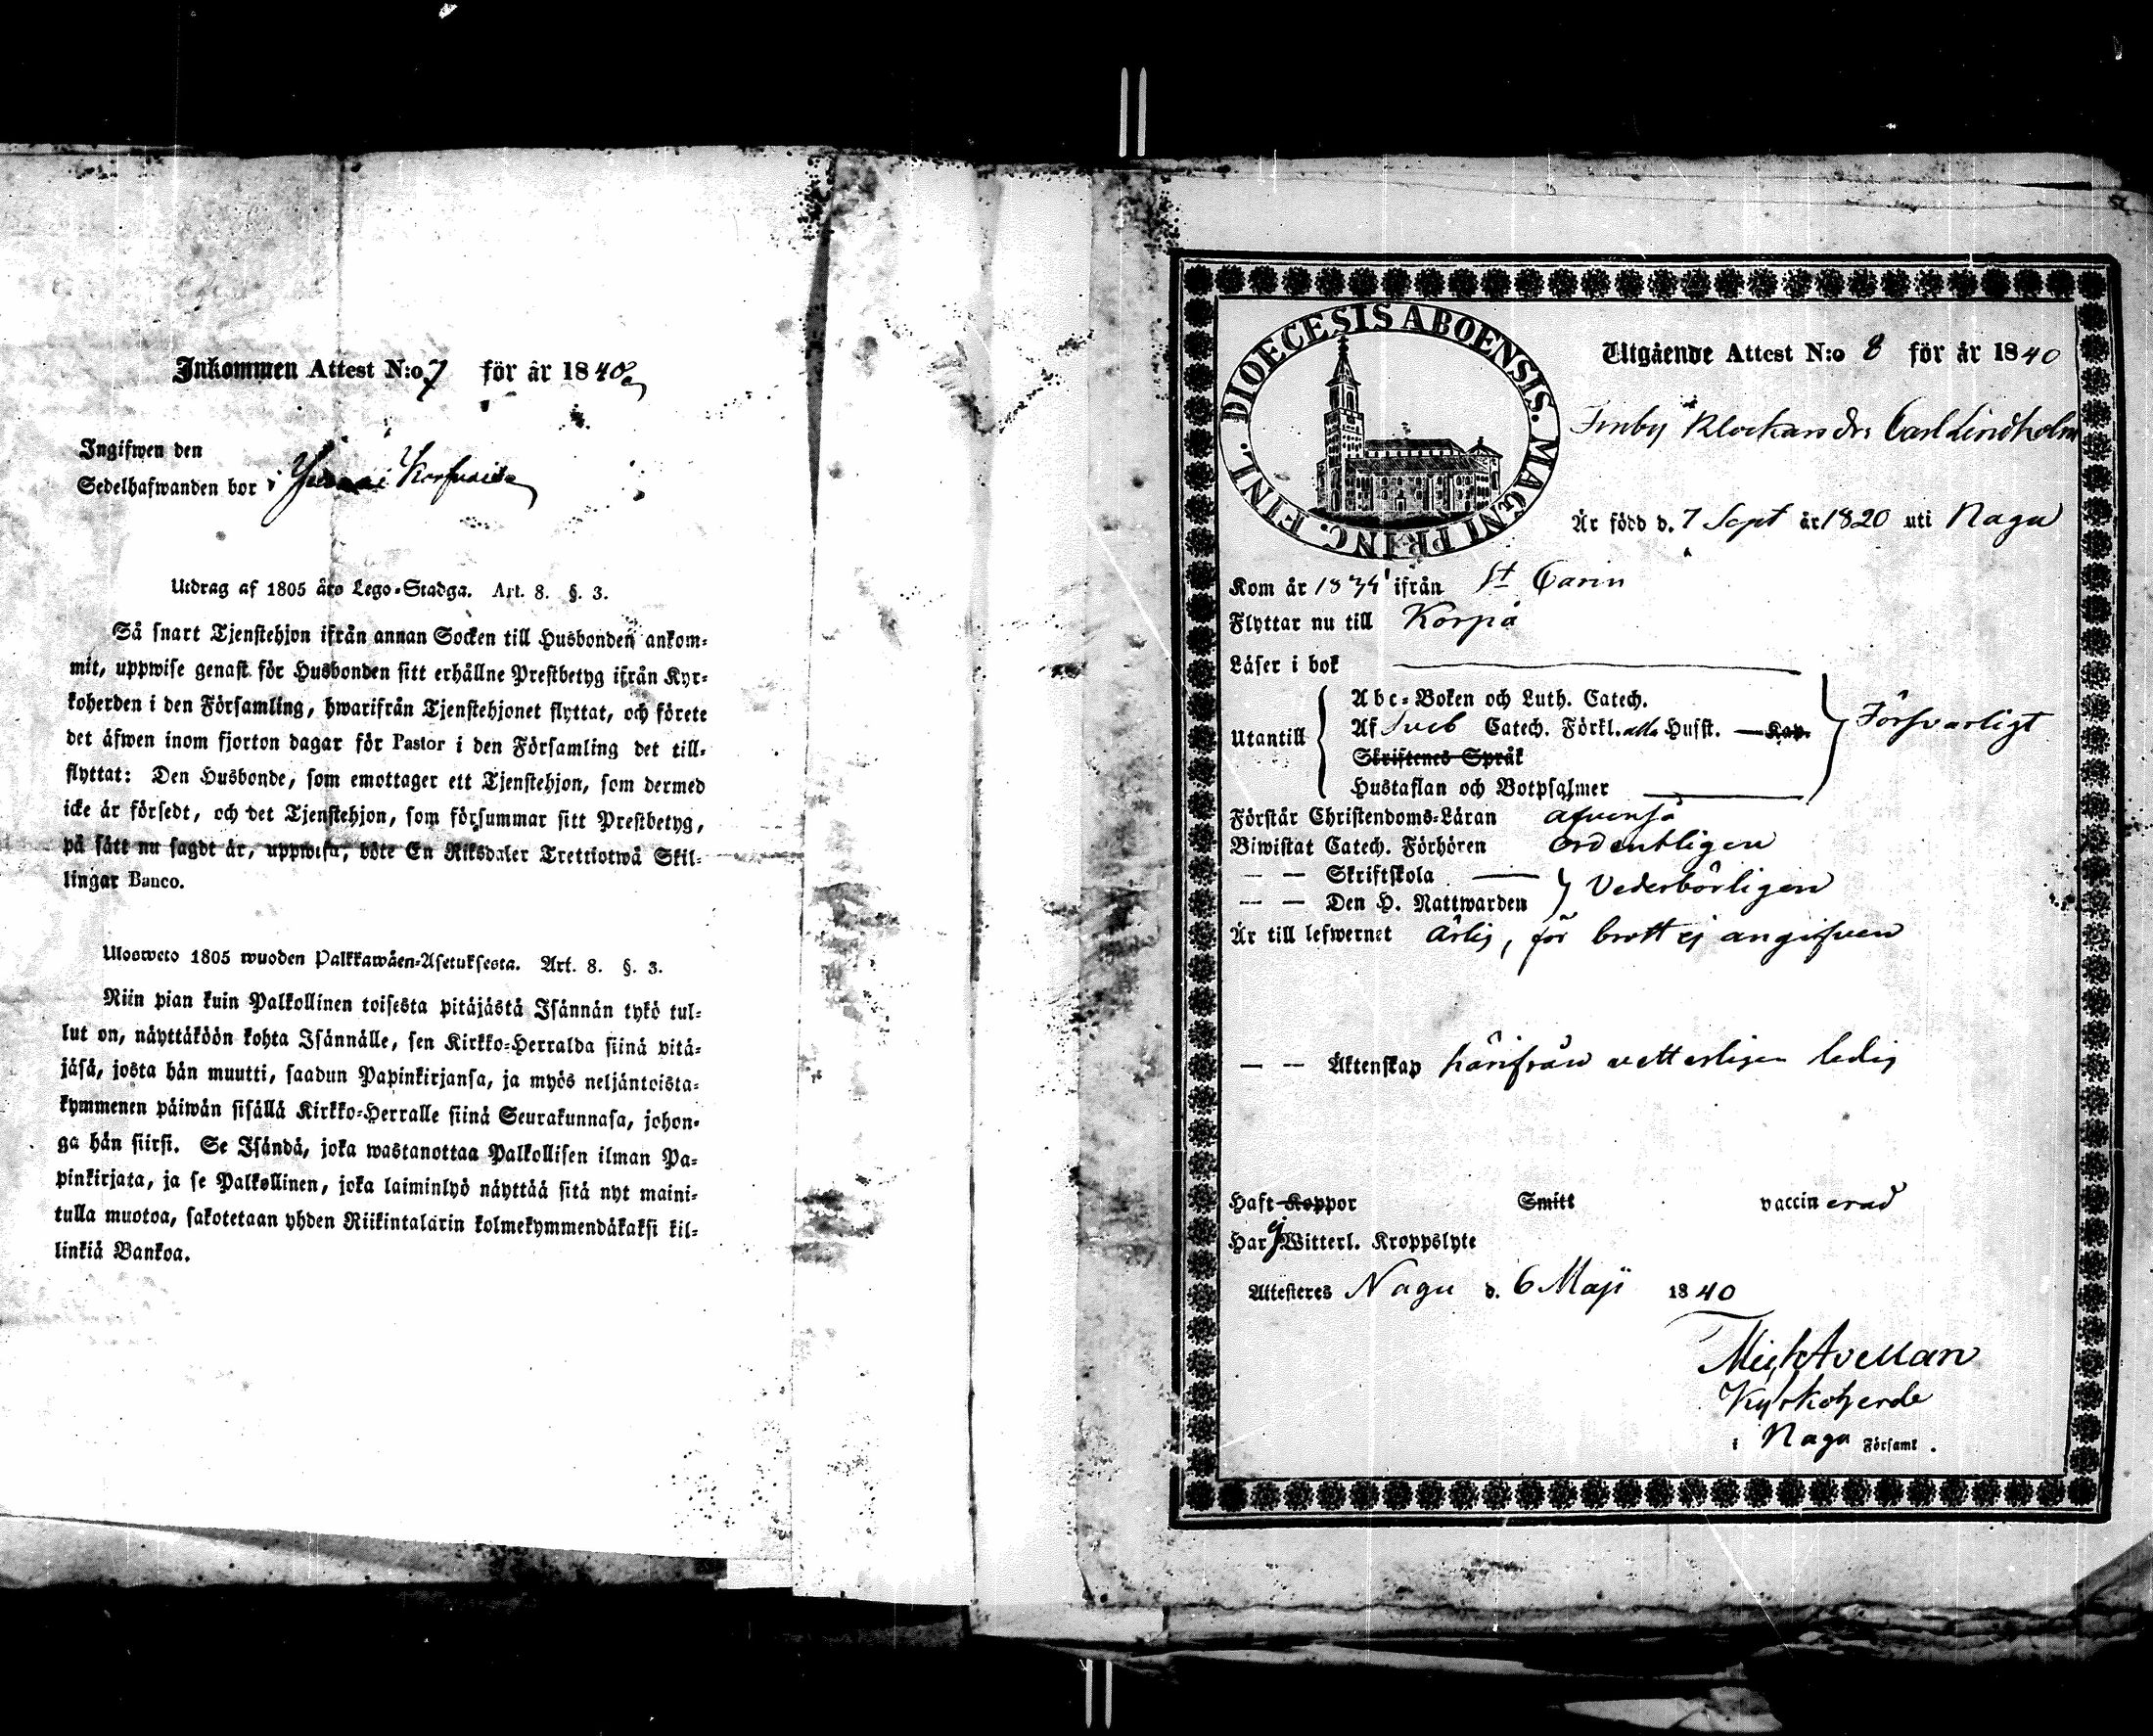 Inkommen Attest N:o 7 för år 1840
Ingifwen den
Sedelhafwanden bor i
Utdrag af 1805 års Lego-Stadga. Art. 8. §. 3.
Så snart Tjenstehjon ifrån annan Socken till Husbonden ankom-
mit, uppwise genast för Husbonden sitt erhållne Prestbetyg ifrån Kyr-
koherden i den Församling, hwarifrån Tjenstehjonet flyttat, och förete
det äfwen inom fjorton dagar för Pastor i den Församling det till-
flyttat: Den Husbonde, som emottager ett Tjenstehjon, som dermed
icke är försedt, och det Tjenstehjon, som försummar sitt Prestbetyg,
på sätt nu sagdt är, uppwisa, böte En Riksdaler Trettiotwå Skil-
lingar Banco.
Ulosweto 1805 wuoden Palkkawäen-Asetuksesta. Art. 8. §. 3.
Niin pian kuin Palkollinen toisesta pitäjästä Isännän tykö tul-
lut on, näyttäköön kohta Isännälle, sen Kirkko-Herralda siinä pitä-
jäsä, josta hän muutti, saadun Papinkirjansa, ja myös neljäntoista-
kymmenen päiwän sisällä Kirkko-Herralle siinä Seurakunnasa, johon-
ga hän siirsi. Se Isändä, joka wastanottaa Palkollisen ilman Pa-
pinkirjata, ja se Palkollinen, joka laiminlyö näyttää sitä nyt maini-
tulla muotoa, sakotetaan yhden Riikintalarin kolmekymmendäkaksi kil-
linkiä Bankoa.
DIOECESIS ABOENSIS. MAGNI PRINC. FINL.
Utgående Attest N:o 8 för år 1840
Klockars Carl Lindholm
Är född d. 7 Sept år 1820 uti Nagu
Kom år ifrån St Carin
Flyttar nu till Korpo
Läser i bok
Abc-Boken och Luth. Catech.
Utantill Af Sveb Catech. Förkl. Husst. Kap. Försvarligt
Skriftenes Språk
Hustaflan och Botpsalmer
Förstår Christendoms-Läran äfvenså
Biwistat Catech. Förhören ordentligen
— — Skriftskola
— — Den H. Nattwarden Vederbörligen
Är till lefwernet ärlig, för brott ej angifven
— — Äktenskap härifrån vetterligen ledig
Haft Koppor Smitt vaccinerad
Har ej Witterl. Kroppslyte
Attesteres Nagu d. 6 Maji 1840
Mich Avellan
Kyrkoherde
i Nagu Församl.